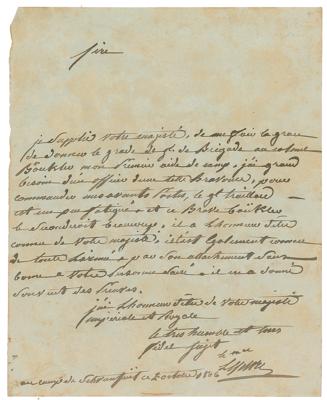 Sire
je supplie votre majesté, de me faire la grace
de donner le grade de gl. de Brigade au colonel
mon premier aide de camp. j'ai grand
besoin d'un officier d'une telle Bravoure, pour
commander mes avants Postes, le gl.
est un peu fatigué, et ce Brave
le beaucoup, il a L'honneur d'être
connu de votre majesté, il est Egalement connu
de toute L'armée, par son attachement sans
borne a Votre, il en a donné
souvent des Preuves.
j'ai L'honneur d'être de votre majesté
imperiale et Royale
le très humble et tres
fidel sujet
au camp de ce 2 octobre 1806